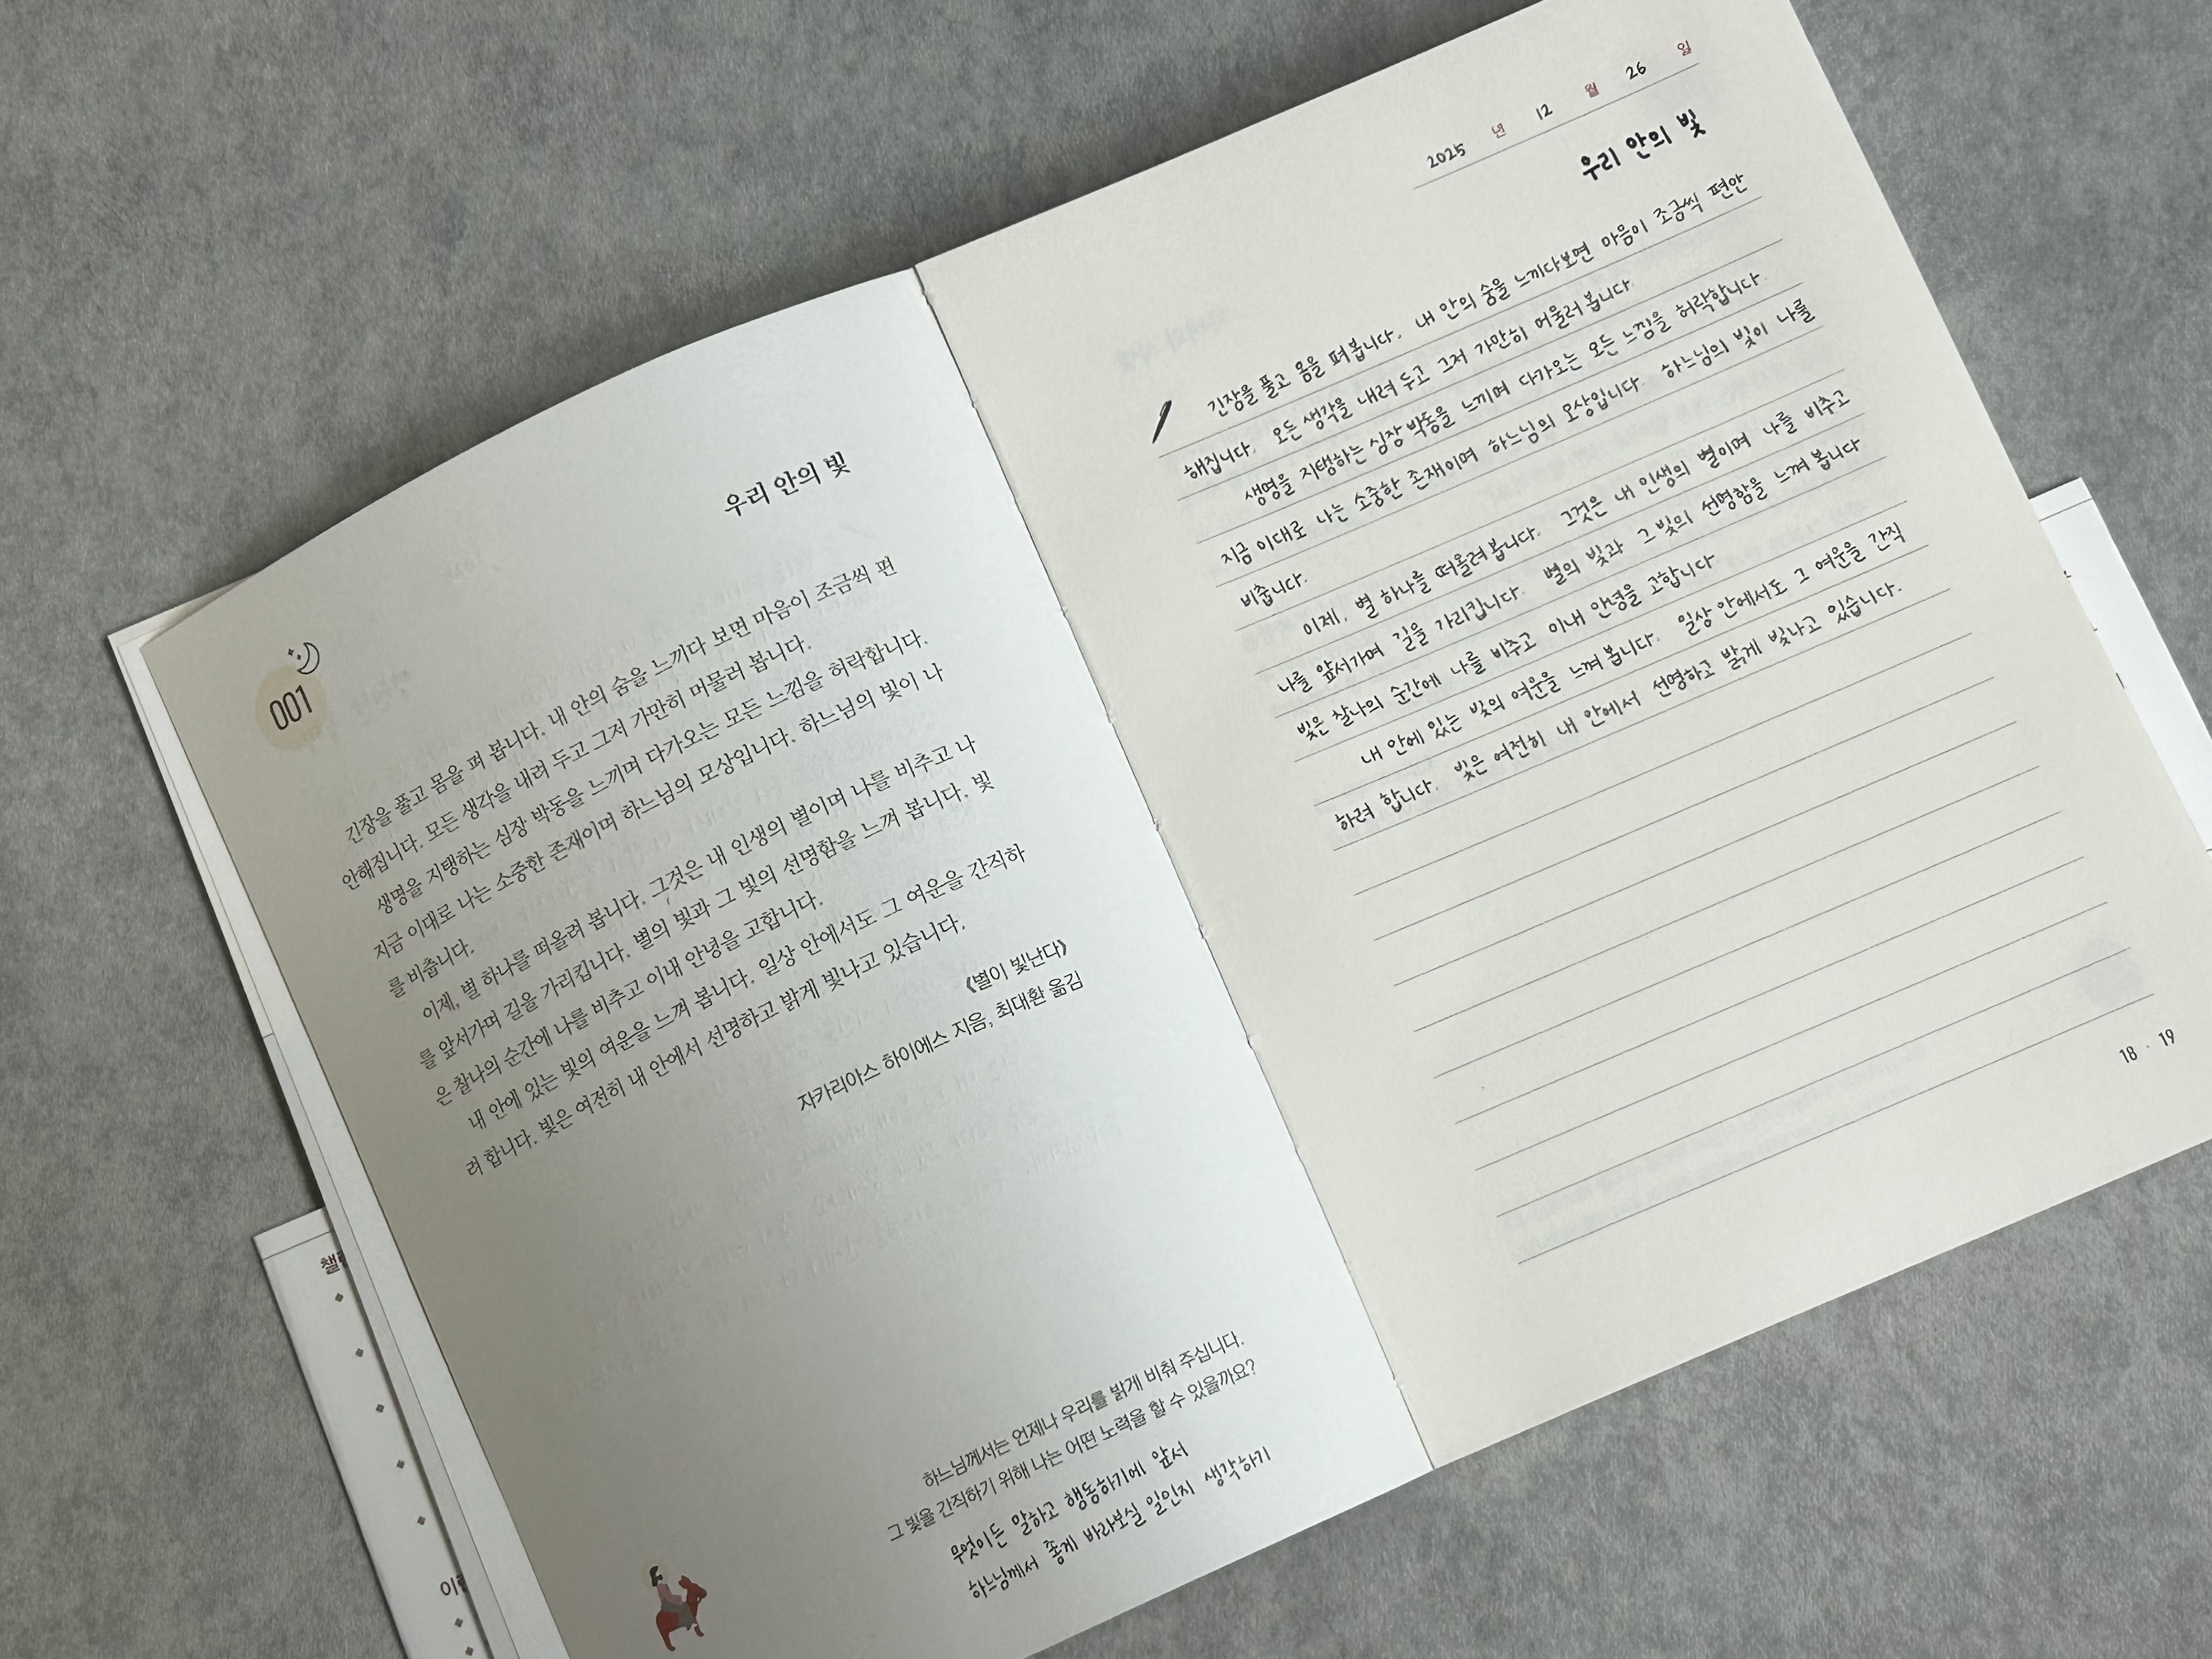 우리 안의 빛
001
긴장을 풀고 몸을 펴 봅니다. 내 안의 숨을 느끼다 보면 마음이 조금씩 편
안해집니다. 모든 생각을 내려 두고 그저 가만히 머물러 봅니다.
생명을 지탱하는 심장 박동을 느끼며 다가오는 모든 느낌을 허락합니다.
지금 이대로 나는 소중한 존재이며 하느님의 모상입니다. 하느님의 빛이 나
를 비춥니다.
이제, 별 하나를 떠올려 봅니다. 그것은 내 인생의 별이며 나를 비추고 나
를 앞서가며 길을 가리킵니다. 별의 빛과 그 빛의 선명함을 느껴 봅니다. 빛
은 찰나의 순간에 나를 비추고 이내 안녕을 고합니다.
내 안에 있는 빛의 여운을 느껴 봅니다. 일상 안에서도 그 여운을 간직하
려 합니다. 빛은 여전히 내 안에서 선명하고 밝게 빛나고 있습니다.
《별이 빛난다》
자카리아스 하이에스 지음, 최대환 옮김
하느님께서는 언제나 우리를 밝게 비춰 주십니다.
그 빛을 간직하기 위해 나는 어떤 노력을 할 수 있을까요?
무엇이든 말하고 행동하기에 앞서
하느님께서 좋게 바라보실 일인지 생각하기
2025 년 12 월 26 일
우리 안의 빛
긴장을 풀고 몸을 펴봅니다. 내 안의 숨을 느끼다보면 마음이 조금씩 편안
해집니다. 모든 생각을 내려 두고 그저 가만히 머물러 봅니다.
생명을 지탱하는 심장 박동을 느끼며 다가오는 모든 느낌을 허락합니다.
지금 이대로 나는 소중한 존재이며 하느님의 모상입니다. 하느님의 빛이 나를
비춥니다.
이제, 별 하나를 떠올려 봅니다. 그것은 내 인생의 별이며 나를 비추고
나를 앞서가며 길을 가리킵니다. 별의 빛과 그 빛의 선명함을 느껴 봅니다
빛은 찰나의 순간에 나를 비추고 이내 안녕을 고합니다
내 안에 있는 빛의 여운을 느껴 봅니다. 일상 안에서도 그 여운을 간직
하려 합니다. 빛은 여전히 내 안에서 선명하고 밝게 빛나고 있습니다.
18 · 19